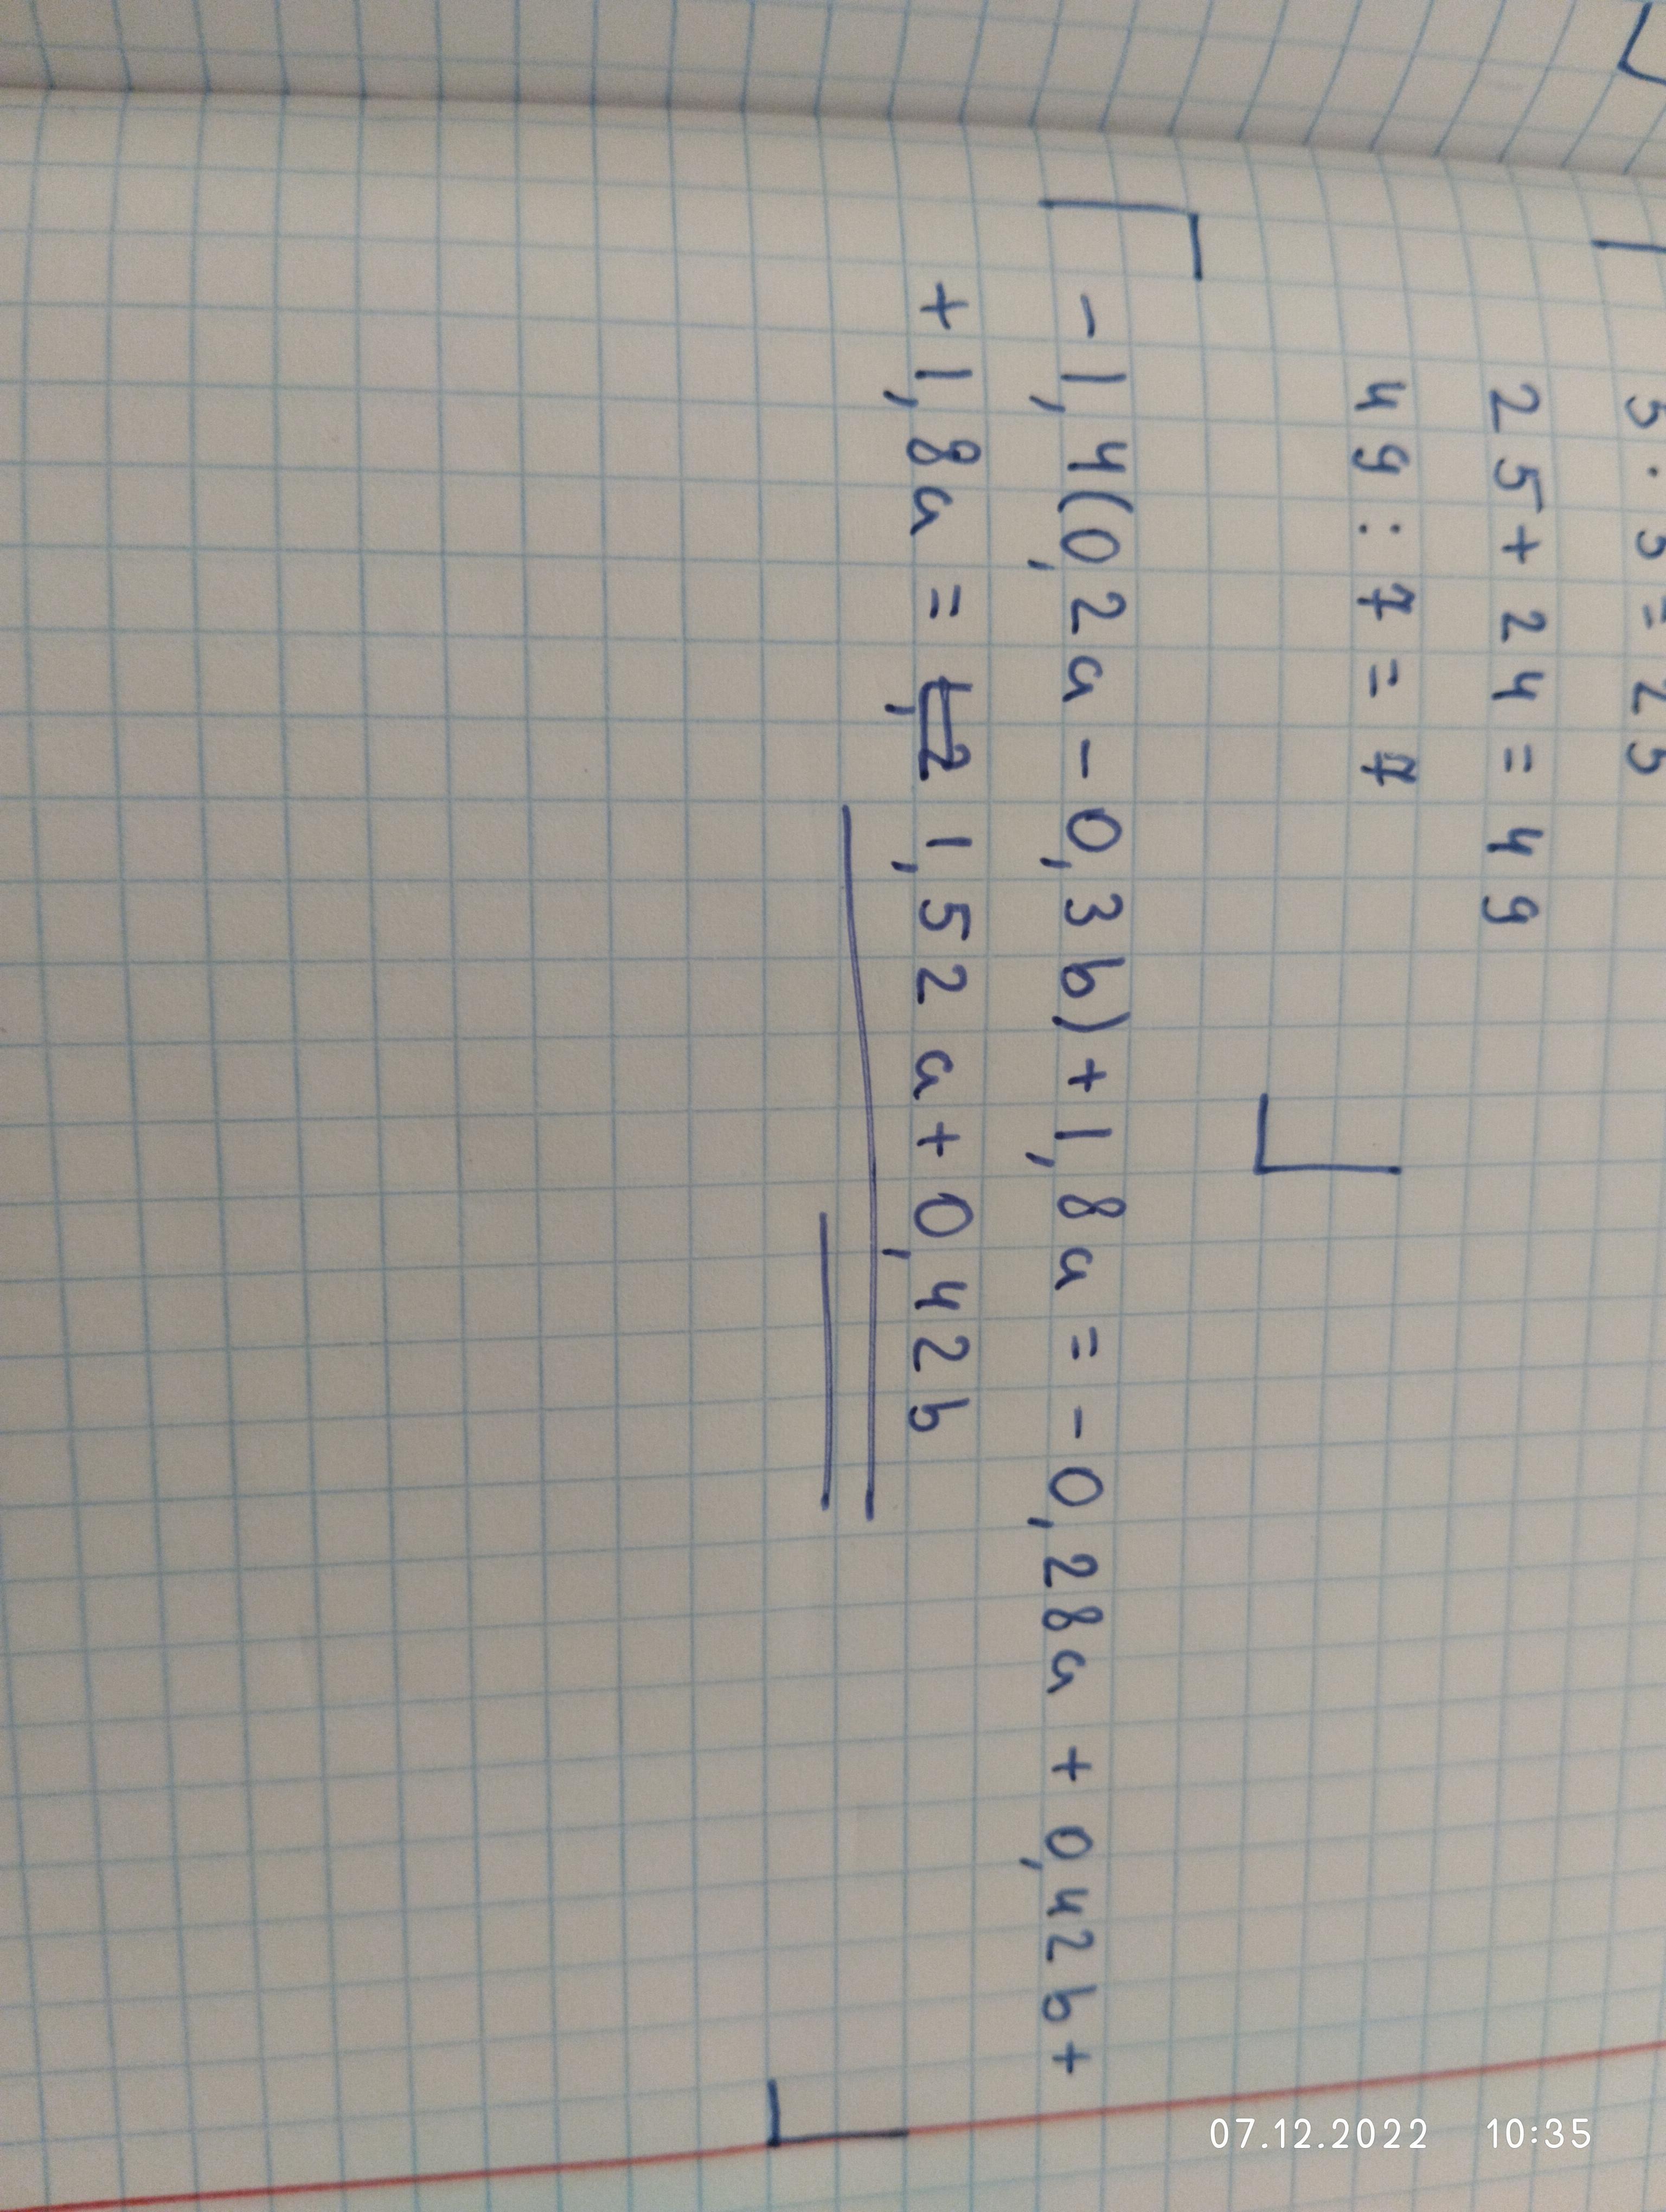 5 · 5 = 25
25 + 24 = 49
49 : 7 = 7
- 1,4(0,2a - 0,3b) + 1,8a = - 0,28a + 0,42b +
+ 1,8a = 1,52a + 0,42b
07.12.2022 10:35